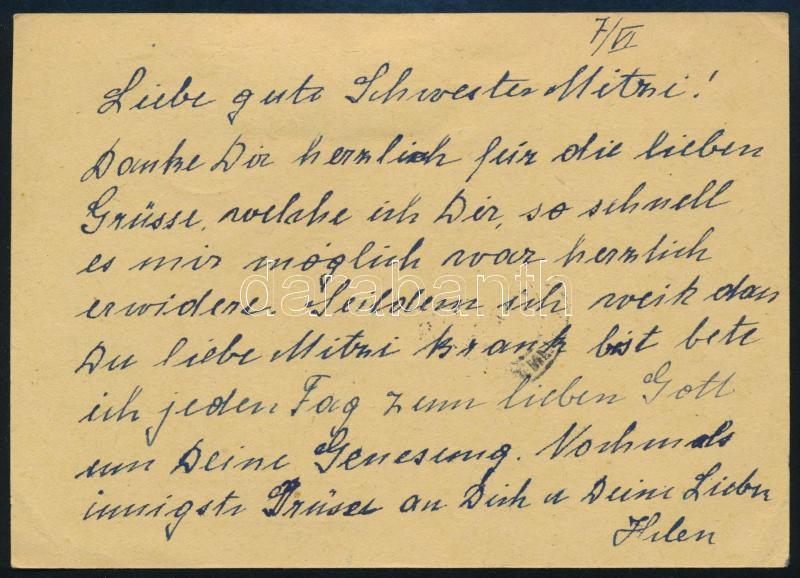 7/VI
Liebe gute Schwester Mitzi!
Danke Dir herzlich für die lieben
Grüsse, welche ich Dir, so schnell
es mir möglich war herzlich
erwidere. Seitdem ich weis das
Du liebe Mitzi krank bist bete
ich jeden Tag zum lieben Gott
um Deine Genesung. Nochmals
innigste Grüsse an Dich u Deine Lieben
Helen
darabanth